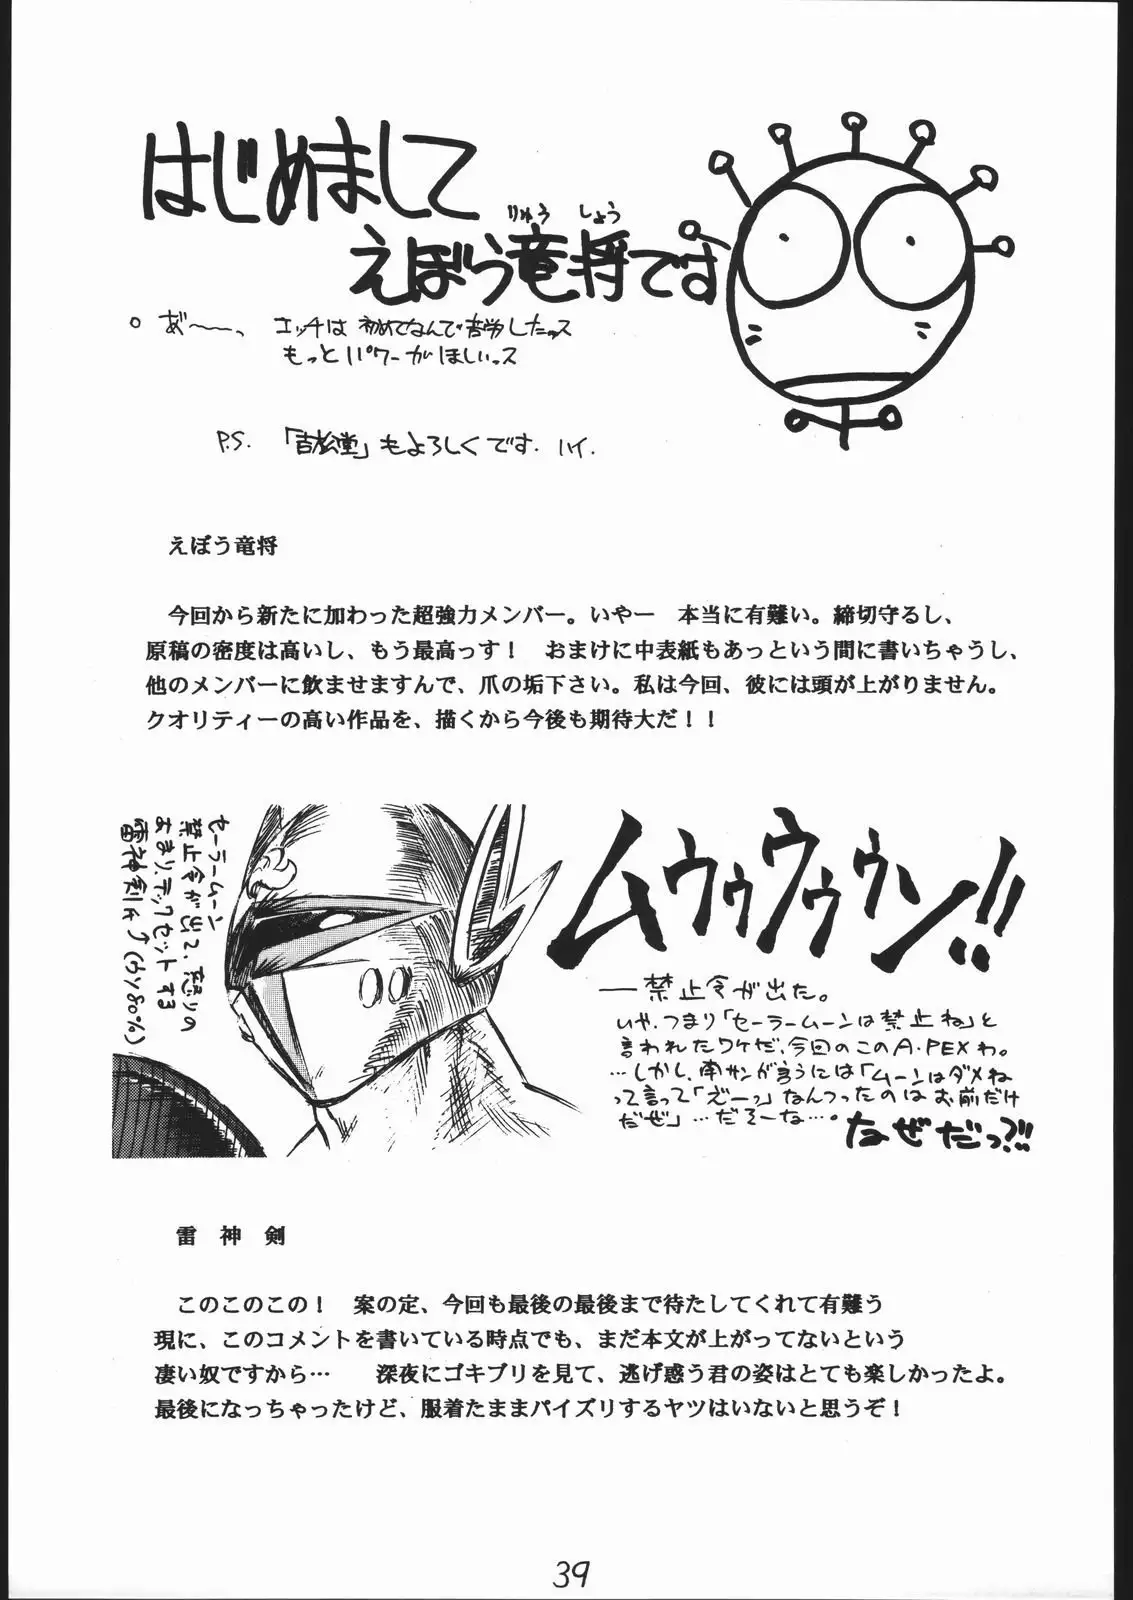 はじめまして
りゅう しょう
えぼう竜将です
。あ゛〜〜っ エッチは初めてなんで苦労したっス
もっとパワーがほしいっス
P.S. 「吉松堂」もよろしくです. ハイ.
えぼう竜将
今回から新たに加わった超強力メンバー。いやー 本当に有難い。締切守るし、
原稿の密度は高いし、もう最高っす！ おまけに中表紙もあっという間に書いちゃうし、
他のメンバーに飲ませますんで、爪の垢下さい。私は今回、彼には頭が上がりません。
クオリティーの高い作品を、描くから今後も期待大だ！！
セーラームーン
禁止令が出て、怒りの
あまり、テックセットする
雷神剣氏♂(ウソ80%)
ムウゥウゥウン!!
―禁止令が出た。
いや、つまり「セーラームーンは禁止ね」と
言われたワケだ、今回のこのA・PEXわ。
…しかし、南サンが言うには「ムーンはダメね
って言って「えーっ」なんつったのはお前だけ
だぜ」…だそーな…。なぜだっ?!!
雷 神 剣
このこのこの！ 案の定、今回も最後の最後まで待たしてくれて有難う
現に、このコメントを書いている時点でも、まだ本文が上がってないという
凄い奴ですから… 深夜にゴキブリを見て、逃げ惑う君の姿はとても楽しかったよ。
最後になっちゃったけど、服着たままパイズリするヤツはいないと思うぞ！
39